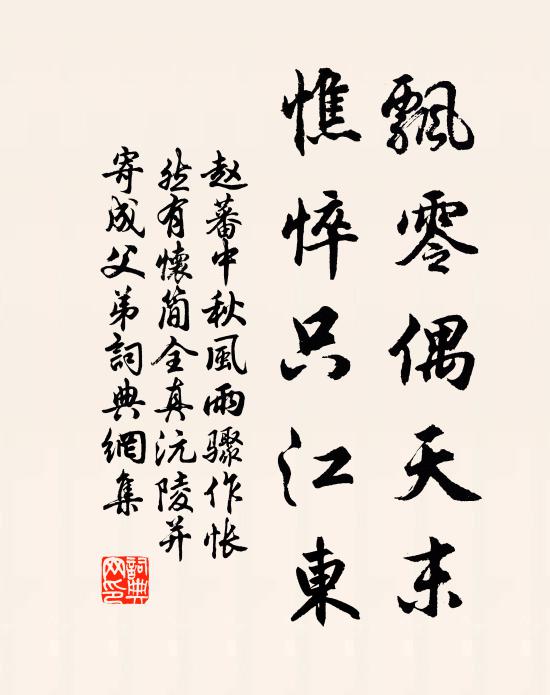 飄零偶天末
憔悴只江東
赵蕃中秋風雨驟作怅
然有懷简全真沅陵并
寄成父弟詞典網集
詞典
网印